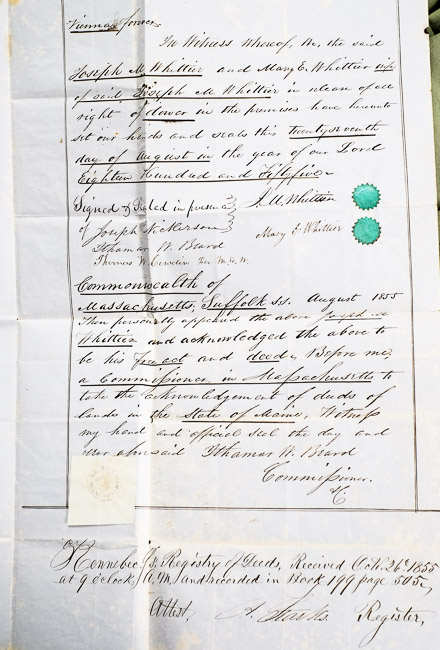 Vienna forever
In Witness Whereof, We, the said
Joseph M. Whittier and Mary E. Whittier wife
of said Joseph M Whittier in release of all
right of dower in the premises have hereunto
set our hands and seals this twentyseventh
day of August in the year of our Lord
Eighteen Hundred and Fiftyfive
Signed & Sealed in presence
of Joseph Nickerson
Ithamar W. Beard
Thomas W. for M. E. W.
J. M. Whittier
Mary E Whittier
Commonwealth of
Massachusetts, Suffolk ss. August 1855
Then personally appeared the above
Whittier and acknowledged the above to
be his free act and deed. Before me,
a Commissioner in Massachusetts to
take the acknowledgement of deeds of
lands in the State of Maine, Witness
my hand and official seal the day and
year aforesaid Ithamar W. Beard
Commissioner.
Kennebec ss. Registry of Deeds, Received Oct. 26th 1855
at 9 oclock, A.M. and recorded in Book 199 page 505,
Attest, Starks Register,